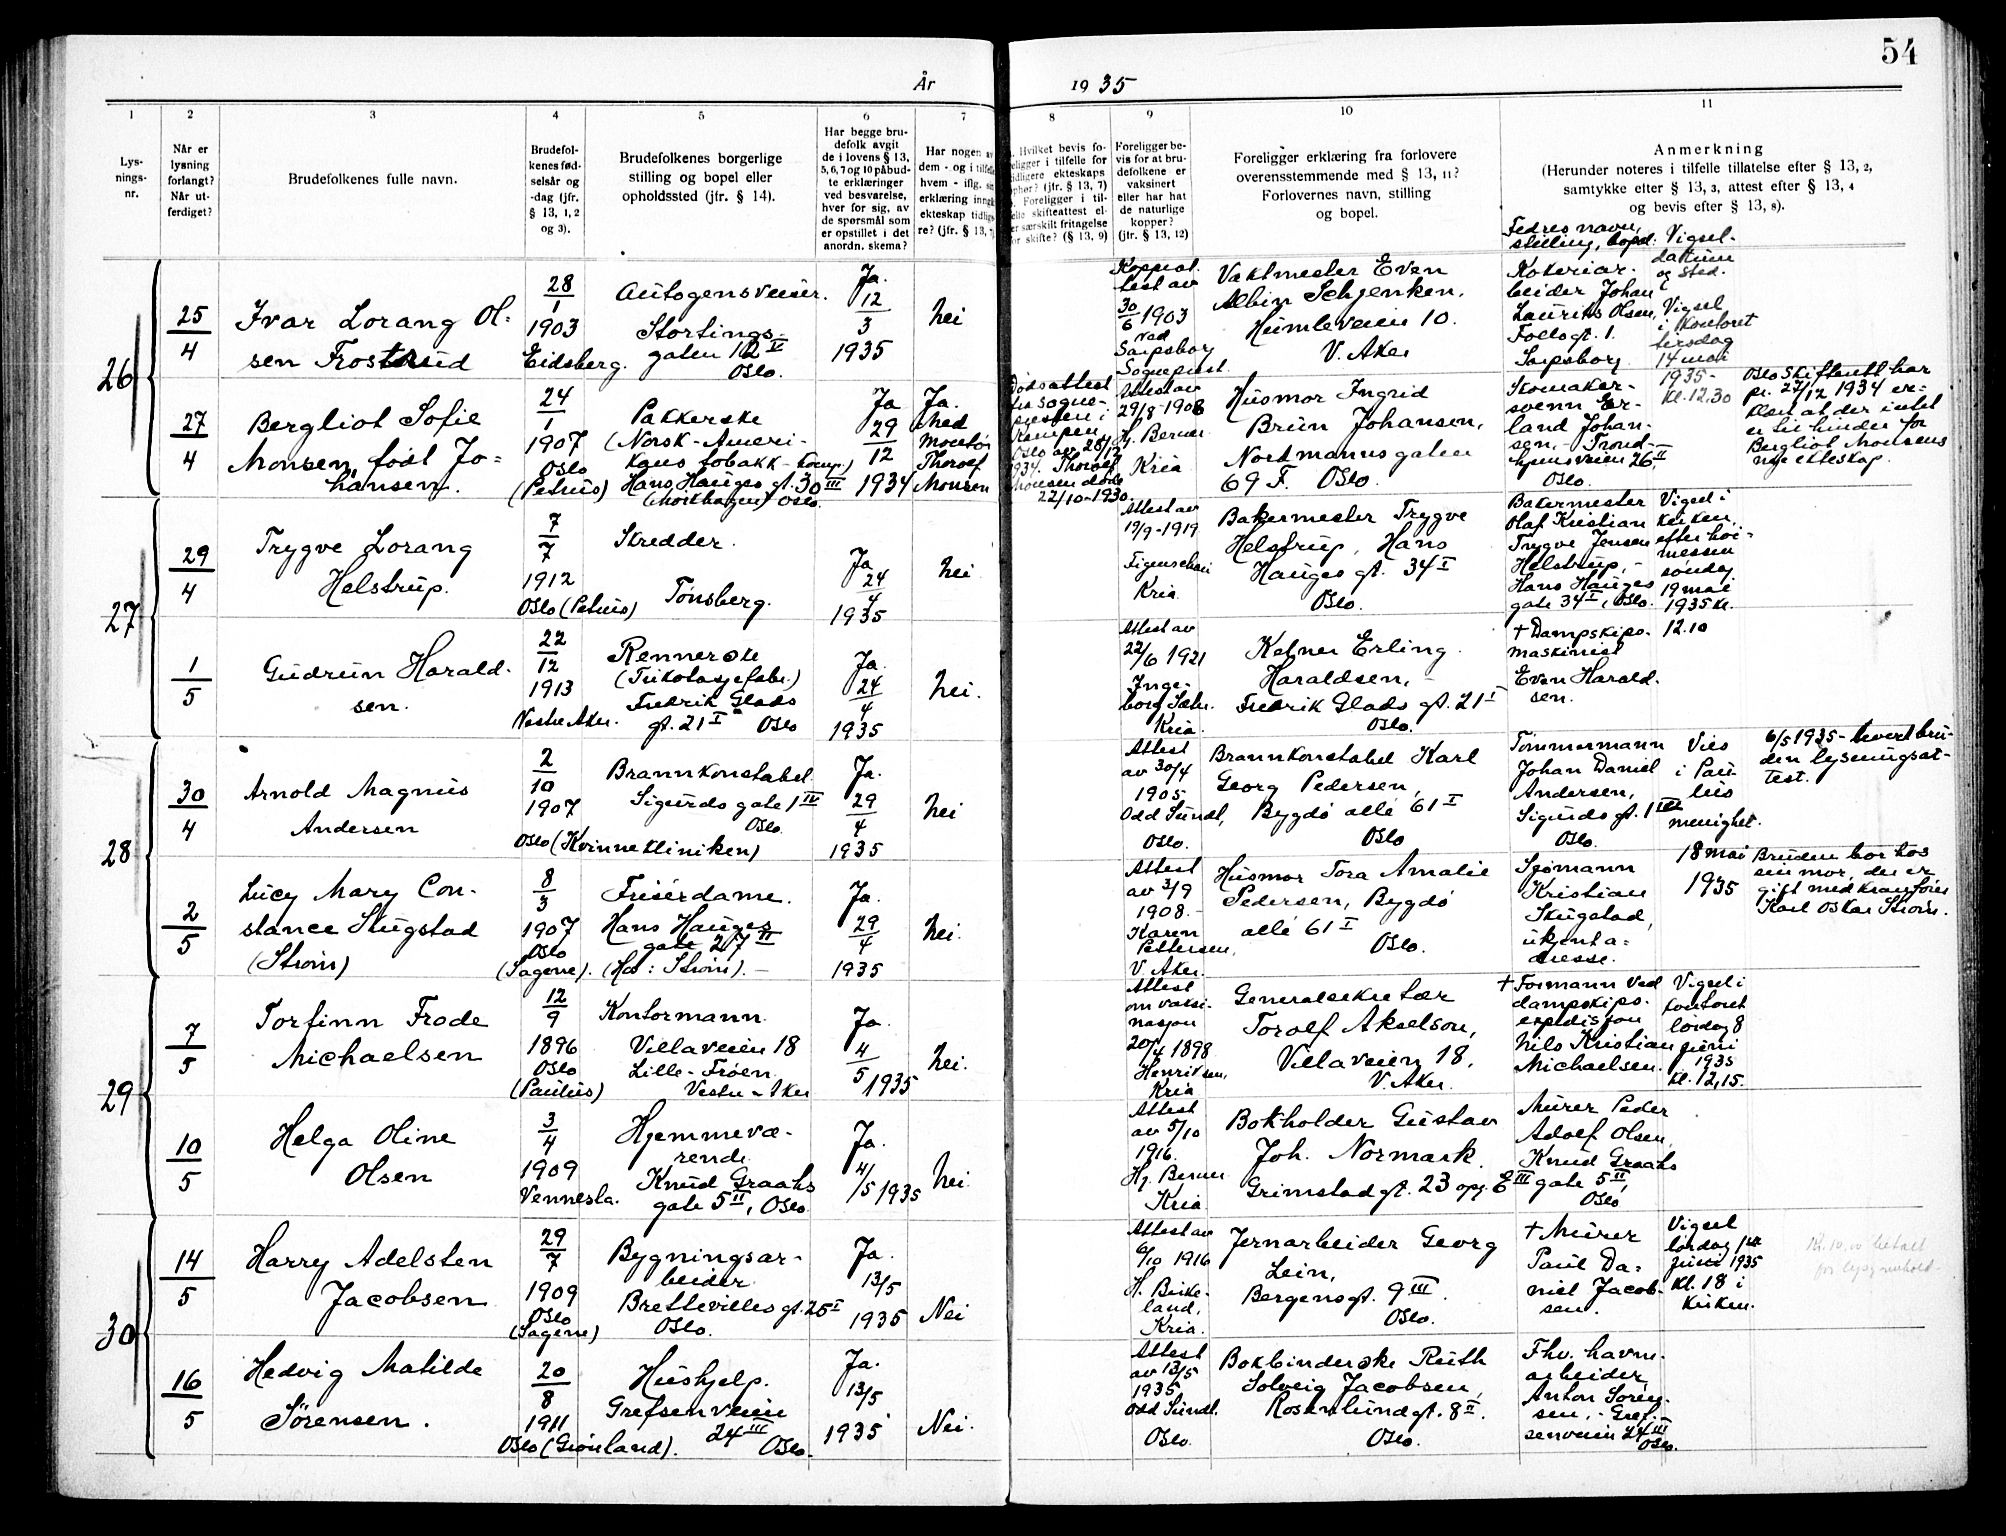 54
År 1935
1
2
3
4
5
6
7
8
9
10
11
Lys-
nings-
nr.
Når er
lysning
forlangt?
Når ut-
ferdiget?
Brudefolkenes fulle navn.
Brudefol-
kenes fød-
selsår og
-dag (jfr.
§ 13, 1, 2
og 3).
Brudefolkenes borgerlige
stilling og bopel eller
opholdssted (jfr. § 14).
Har begge bru-
defolk avgit
de i lovens § 13,
5, 6, 7 og 10 påbud-
te erklæringer
ved besvarelse,
hver for sig, av
de spørsmål som
er opstillet i det
anordn. skema?
Har nogen av
dem - og i tilfelle
hvem - iflg. sin
erklæring inngått
ekteskap tidlige-
re? (jfr. § 13, 7)
Hvilket bevis fo-
religger i tilfelle for
tidligere ekteskaps
ophør? (jfr. § 13, 7)
Foreligger i til-
felle skifteattest el-
ler særskilt fritagelse
for skifte? (§ 13, 9)
Foreligger be-
vis for at bru-
defolkene er
vaksinert
eller har hat
de naturlige
kopper?
(jfr. § 13, 12)
Foreligger erklæring fra forlovere
overensstemmende med § 13, 11?
Forlovernes navn, stilling
og bopel.
Anmerkning
(Herunder noteres i tilfelle tillatelse efter § 13, 2,
samtykke efter § 13, 3, attest efter § 13, 4
og bevis efter § 13, 8).
Fedres navn,
stilling, bopel.
Vigsel-
datum
og sted.
26
25/4
Ivar Lorang Ol-
sen Frostrud
28/1
1903
Eidsberg.
Autogensveiser.
Stortings-
gaten 12 V
Oslo.
Ja.
12/3
1935
Nei
Koppeat-
test av
30/6 1903
ved
Sarpsborg
Sogneprest.
Vaktmester Even
Albin Schjenken,
Humleveien 10.
V. Aker
Kokeriar-
beider Johan
Laurits Olsen,
Follogt. 1.
Sarpsborg
Vigsel
i kontoret
tirsdag
14 mai
1935 -
kl. 12.30
27/4
Bergliot Sofie
Monsen, født Jo-
hansen.
24/1
1907
Oslo
(Petrus)
Pakkerske
(Norsk-Ameri-
kans tobakk-komp.)
Hans Hauges gt. 30 III
Oslo.
Ja
29/12
1934
Ja.
Med
Thorolf
Monsen
Dødsattest
fra sogne-
presten i
Kampen,
Oslo av 28/12
1934. Thorolf
Monsen døde
22/10-1930.
Attest av
29/8-1908
Hj. Berner
Kria
Husmor Ingrid
Bruun Johansen,
Nordmannsgaten
69 F. Oslo.
Skomaker-
svenn Er-
land Johan-
sen, - Trond-
hjemsveien 26 II,
Oslo.
Oslo Skifterett har
pr. 27/12 1934 er-
klært at der intet
er til hinder for
Bergliot Monsens
nye ekteskap.
27
29/4
Trygve Lorang
Helstrup.
7/7
1912
Oslo (Petrus)
Skredder.
Tønsberg.
Ja
24/4
1935
Nei
Attest av
19/9-1919
Kria.
Bakermester Trygve
Helstrup, Hans
Hauges gt. 34 I
Oslo.
Bakermester
Olaf Kristian
Trygve Jensen
Helstrup, -
Hans Hauges
gate 34 I, Oslo.
Vigsel i
kirken,
efter høi-
messen
søndag
19 mai
1935 kl.
12.10
1/5
Gudrun Harald-
sen.
22/12
1913
Vestre Aker.
Rennerske
(Trikotasjefabr.)
Fredrik Glads
gt. 21 I Oslo
Ja.
24/4
1935
Nei.
Attest av
22/6 1921
Inge-
borg Sæhr.
Kria.
Kelner Erling
Haraldsen, -
Fredrik Glads gt. 21 I
Oslo.
+ Dampskips-
maskinist
Even Harald-
sen.
28
30/4
Arnold Magnus
Andersen
2/10
1907
Oslo (Kvinneklinikken)
Brannkonstabel
Sigurds gate 1 IV
Oslo.
Ja.
29/4
1935
Nei
Attest
av 30/4
1905
Odd Sundt,
Oslo.
Brannkonstabel Karl
Georg Pedersen,
Bygdø allé 61 I
Oslo
Tømmermann
Johan Daniel
Andersen,
Sigurds gt. 1 III
Oslo.
Vies
i Pau-
lus
menighet.
18 mai
1935
6/5 1935 - levert bru-
den lysningsat-
test.
2/5
Lucy Mary Con-
stance Skugstad
(Strøm)
8/3
1907
Oslo
(Sagene).
Frisérdame.
Hans Hauges
gate 27 II
(Hos: Strøm). -
Ja.
29/4
1935
Nei.
Attest
av 3/9
1908. -
Karen
Pettersen,
V. Aker.
Husmor Tora Amalie
Pedersen, Bygdø
allé 61 I
Oslo.
Sjømann
Kristian
Skugstad,
ukjent a-
dresse.
Bruden bor hos
sin mor, der er
gift med kranfører
Karl Oskar Strøm.
29
7/5
Torfinn Frode
Michaelsen
12/9
1896
Oslo
(Paulus)
Kontormann.
Villaveien 18
Lille-Frøen
Vestre-Aker
Ja.
4/5 1935
Nei.
Attest
om vaksi-
nasjon
20/4 1898
Henriksen,
Kria
Generalsekretær
Torolf Akselson,
Villaveien 18,
V. Aker.
+ Formann ved
dampskips-
expedisjon
Nils Kristian
Michaelsen.
Vigsel i
kontoret
lørdag 8
juni
1935
kl. 12,15.
10/5
Helga Oline
Olsen
3/4
1909
Vennesla.
Hjemmevæ-
rende.
Knud Graahs
gate 5 II, Oslo
Ja.
4/5 1935
Nei.
Attest
av 5/10
1916.
Hj. Berner
Kria
Bokholder Gustav
Joh. Normark.
Grimstad gt. 23 opg. E III
Murer Peder
Adolf Olsen,
Knud Graahs
gate 5 II,
Oslo
30
14/5
Harry Adelsten
Jacobsen
29/7
1909
Oslo
(Sagene)
Bygningsar-
beider.
Brettevilles gt. 25 I
Oslo.
Ja.
13/5
1935
Nei
Attest av
6/10 1916
H. Birke-
land,
Kria.
Jernarbeider Georg
Lein,
Bergensgt. 9 III.
Oslo.
+ Murer
Paul Da-
niel Jacob-
sen.
Vigsel
lørdag 1ste
juni 1935
kl. 18 i
kirken.
Kr. 10.00 betalt
16/5
Hedvig Matilde
Sørensen.
20/8
1911
Oslo (Grønland).
Hushjelp.
Grefsenveien
24 III
Oslo.
Ja.
13/5
1935
Nei.
Attest
av 13/5
1935
Odd Sundt.
Oslo.
Bokbinderske Ruth
Solveig Jacobsen,
Rosenlundgt. 8 II.
Oslo.
Fhv. havne-
arbeider
Anton Søren-
sen, - Gref-
senveien 24 III
Oslo.